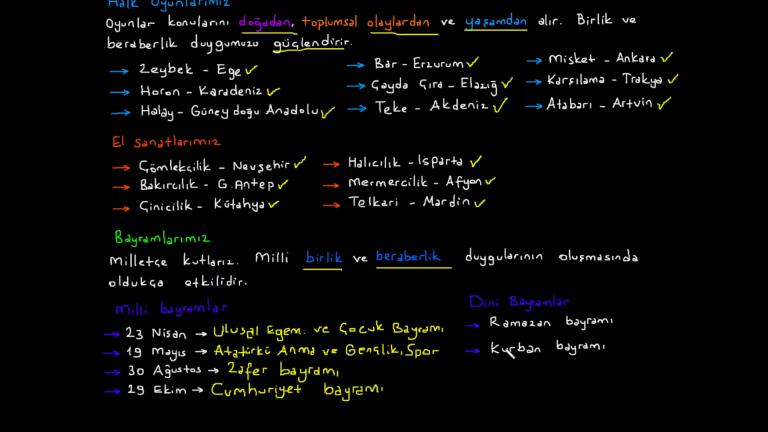 Halk Oyunlarımız
Oyunlar konularını doğadan, toplumsal olaylardan ve yaşamdan alır. Birlik ve
beraberlik duygumuzu güçlendirir.
→ Zeybek - Ege ✓
→ Horon - Karadeniz ✓
→ Halay - Güney doğu Anadolu ✓
→ Bar - Erzurum ✓
→ Çayda Çıra - Elazığ ✓
→ Teke - Akdeniz ✓
→ Misket - Ankara ✓
→ Karşılama - Trakya ✓
→ Atabarı - Artvin ✓
El sanatlarımız
→ Çömlekçilik - Nevşehir ✓
→ Bakırcılık - G.Antep ✓
→ Çinicilik - Kütahya ✓
→ Halıcılık - Isparta ✓
→ Mermercilik - Afyon ✓
→ Telkari - Mardin ✓
Bayramlarımız
Milletçe kutlarız. Milli birlik ve beraberlik duygularının oluşmasında
oldukça etkilidir.
Milli bayramlar
→ 23 Nisan → Ulusal Egem. ve Çocuk Bayramı
→ 19 Mayıs → Atatürkü Anma ve Gençlik, Spor
→ 30 Ağustos → Zafer bayramı
→ 29 Ekim → Cumhuriyet bayramı
Dini Bayramlar
→ Ramazan bayramı
→ Kurban bayramı